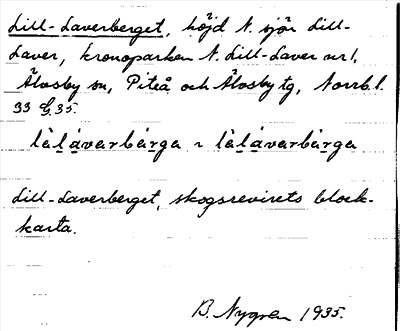 Lill-Laverberget, höjd N. sjön Lill-
Laver, kronoparken N. Lill-Laver nr 1,
Älvsby sn, Piteå och Älvsby tg, Norrb. l.
33 G. 35.
lìlávarbärga ~ lìlávarbärga
Lill-Laverberget, skogsrevirets block-
karta.
B. Nygren 1935.